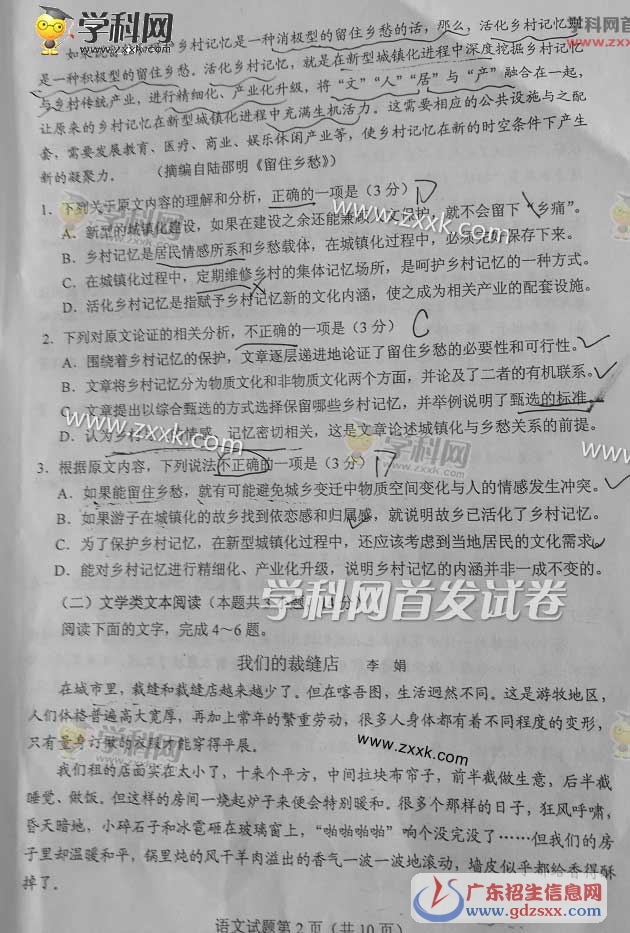 如果说留住乡村记忆是一种消极型的留住乡愁的话，那么，活化乡村记忆则
是一种积极型的留住乡愁。活化乡村记忆，就是在新型城镇化进程中深度挖掘乡村记忆
与乡村传统产业，进行精细化、产业化升级，将“文”“人”“居”与“产”融合在一起，
让原来的乡村记忆在新型城镇化进程中充满生机活力。这需要相应的公共设施与之配
套，需要发展教育、医疗、商业、娱乐休闲产业等，使乡村记忆在新的时空条件下产生
新的凝聚力。 （摘编自陆邵明《留住乡愁》）
1．下列关于原文内容的理解和分析，正确的一项是（3 分）D
A．新型的城镇化建设，如果在建设之余还能兼顾人文保护，就不会留下“乡痛”。
B．乡村记忆是居民情感所系和乡愁载体，在城镇化过程中，必须完好保存下来。
C．在城镇化过程中，定期维修乡村的集体记忆场所，是呵护乡村记忆的一种方式。
D．活化乡村记忆是指赋予乡村记忆新的文化内涵，使之成为相关产业的配套设施。
2．下列对原文论证的相关分析，不正确的一项是（3 分） C
A．围绕着乡村记忆的保护，文章逐层递进地论证了留住乡愁的必要性和可行性。
B．文章将乡村记忆分为物质文化和非物质文化两个方面，并论及了二者的有机联系。
C．文章提出以综合甄选的方式选择保留哪些乡村记忆，并举例说明了甄选的标准。
D．认为乡村与情感、记忆密切相关，这是文章论述城镇化与乡愁关系的前提。
3．根据原文内容，下列说法不正确的一项是（3 分）
A．如果能留住乡愁，就有可能避免城乡变迁中物质空间变化与人的情感发生冲突。
B．如果游子在城镇化的故乡找到依恋感和归属感，就说明故乡已活化了乡村记忆。
C．为了保护乡村记忆，在新型城镇化过程中，还应该考虑到当地居民的文化需求。
D．能对乡村记忆进行精细化、产业化升级，说明乡村记忆的内涵并非一成不变的。
（二）文学类文本阅读（本题共3小题，
阅读下面的文字，完成 4～6 题。
我们的裁缝店 李 娟
在城市里，裁缝和裁缝店越来越少了。但在喀吾图，生活迥然不同。这是游牧地区，
人们体格普遍高大宽厚，再加上常年的繁重劳动，很多人身体都有着不同程度的变形，
只有量身订做的衣服才能穿得平展。
我们租的店面实在太小了，十来个平方，中间拉块布帘子，前半截做生意，后半截
睡觉、做饭。但这样的房间一烧起炉子来便会特别暖和。很多个那样的日子，狂风呼啸，
昏天暗地，小碎石子和冰雹砸在玻璃窗上，“啪啪啪啪”响个没完没了……但我们的房
子里却温暖和平，锅里炖的风干羊肉溢出的香气一波一波地滚动，墙皮似乎都给香得酥
掉了。
语文试题第 2 页（共 10 页）
学科网
www.zxxk.com
学科网
www.zxxk.com
学科网
www.zxxk.com
学科网
www.zxxk
学科网首发试卷
学科网
www.zxxk.com
广东招生信息网
gdzsxx.com